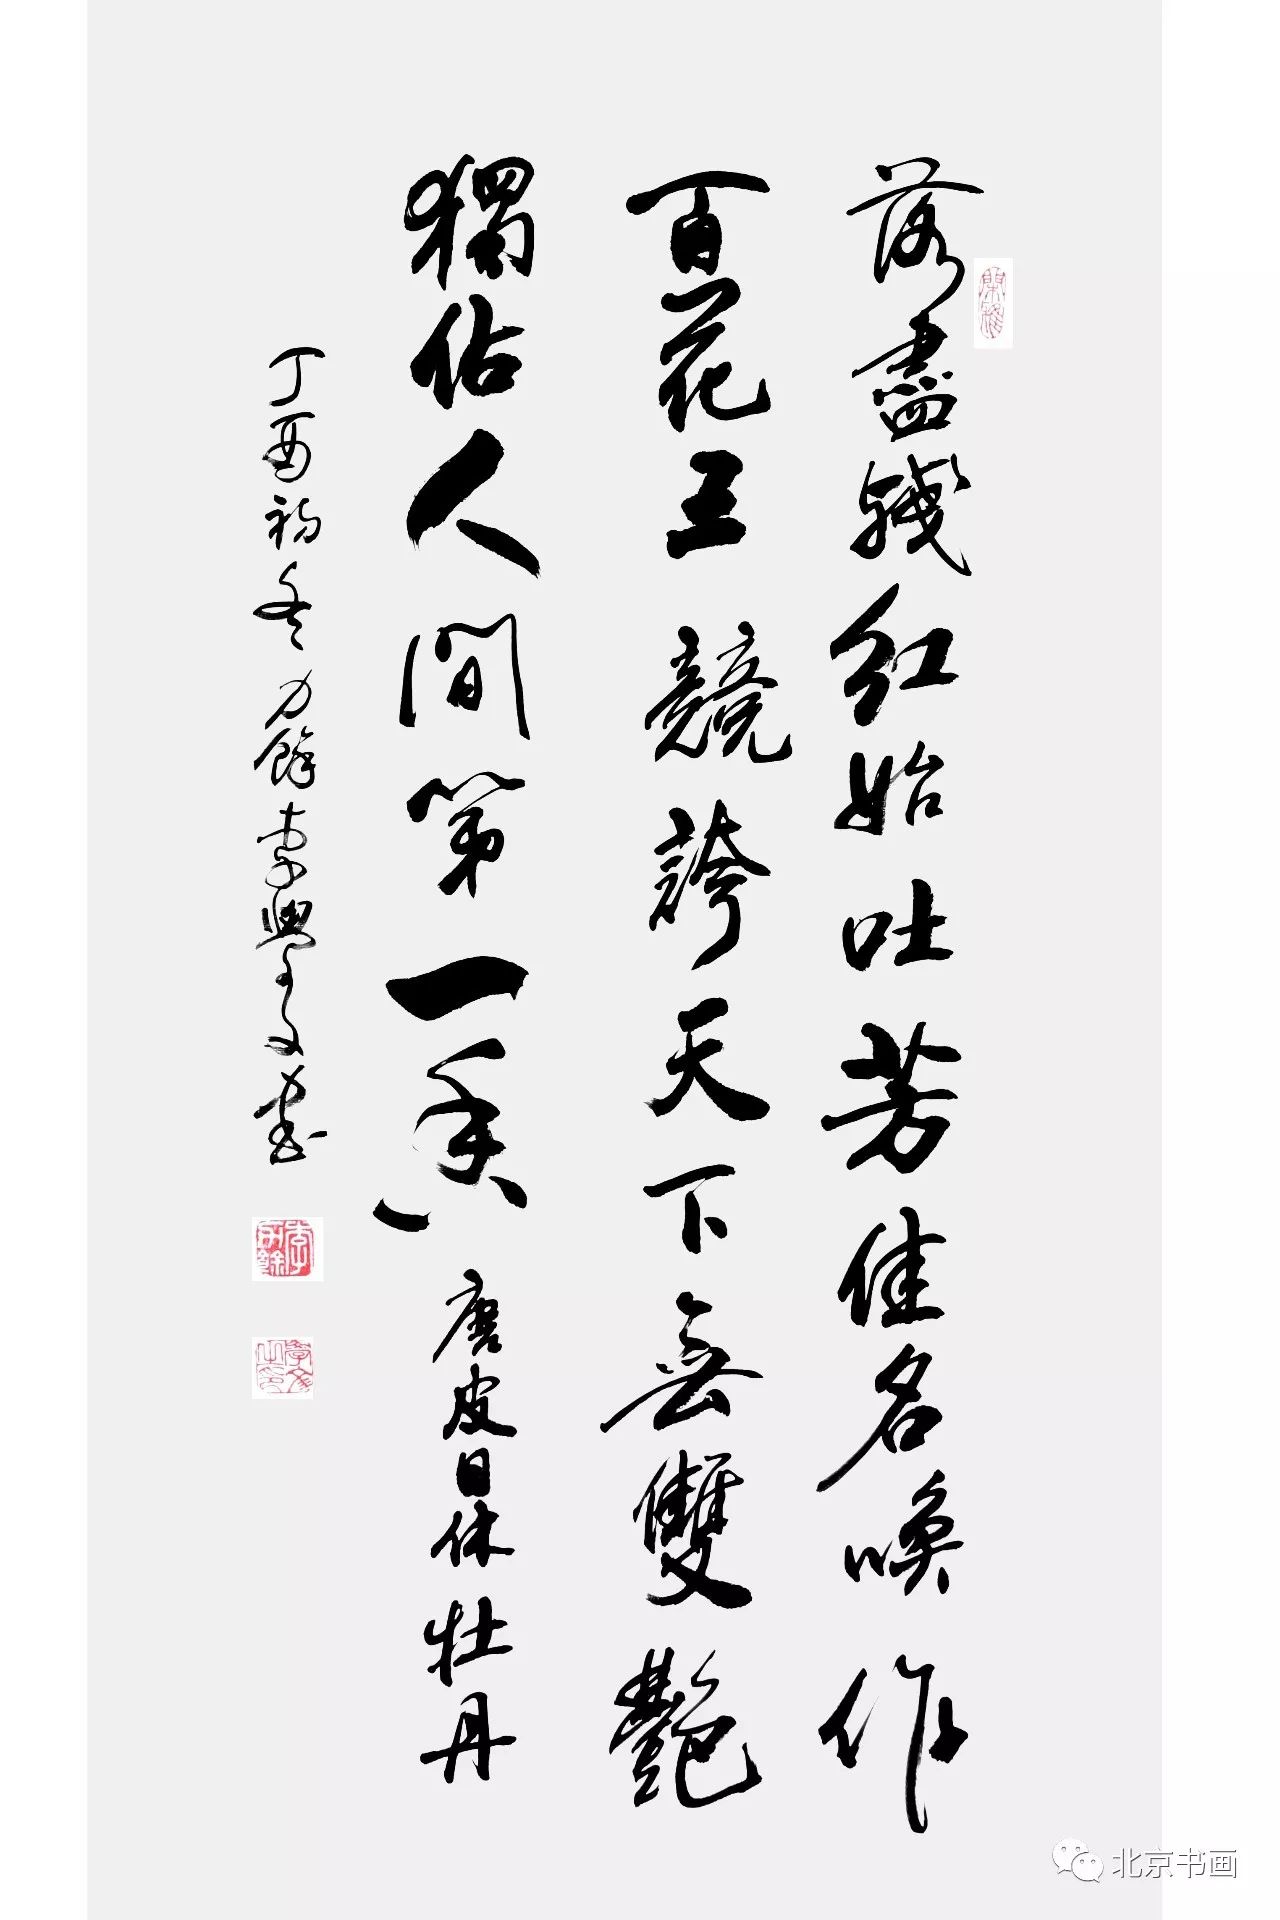 落盡殘紅始吐芳佳名喚作
百花王競誇天下無雙艷
獨佔人間第一香 唐皮日休牡丹
丁酉初冬力餘李學文書
北京书画